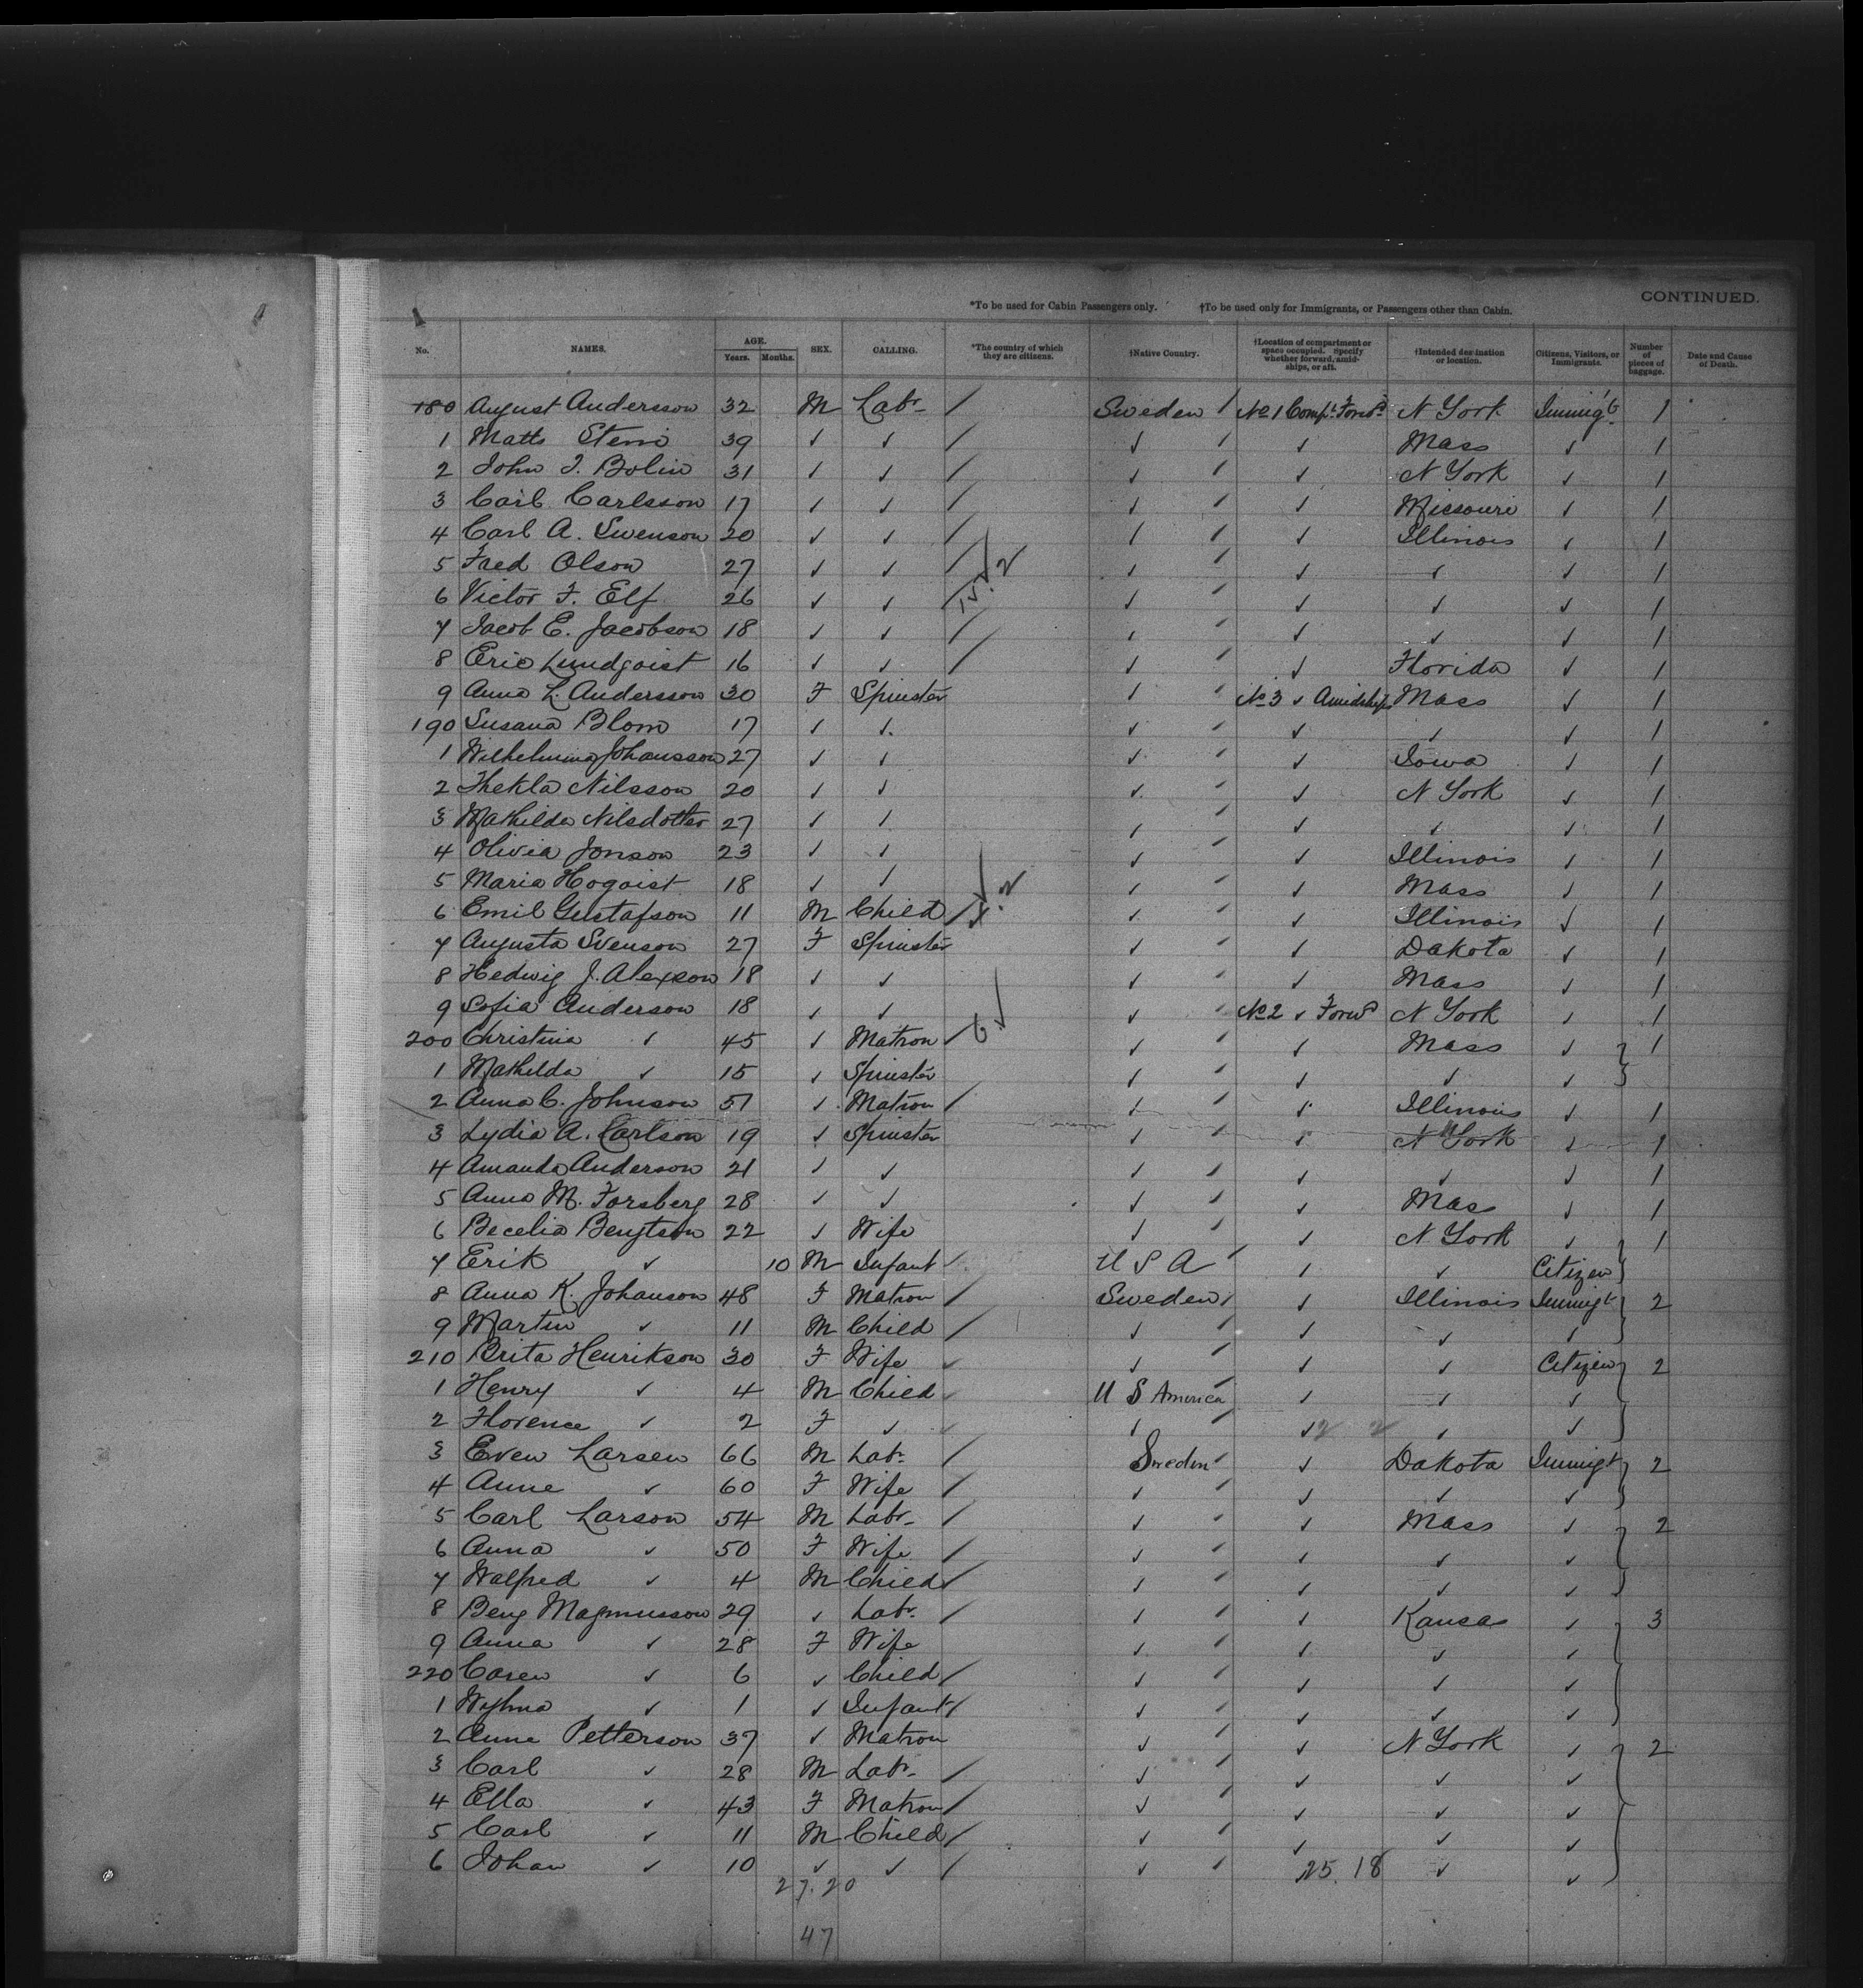 CONTINUED.
*To be used for Cabin Passengers only. †To be used only for Immigrants, or Passengers other than Cabin.
No. NAMES. AGE. Years. Months. SEX. CALLING. *The country of which they are citizens. †Native Country. †Location of compartment or space occupied. Specify whether forward, amidships, or aft. †Intended destination or location. Citizens, Visitors, or Immigrants. Number of pieces of baggage. Date and Cause of Death.
180 August Andersson 32 M Labr / Sweden / No 1 Compt. Forwd N York Immigt 1
1 Matts 39 ✓ ✓ / ✓ / ✓ Mass ✓ 1
2 John J. Bolin 31 ✓ ✓ / ✓ / ✓ N York ✓ 1
3 Carl Carlsson 17 ✓ ✓ / ✓ / ✓ Missouri ✓ 1
4 Carl A. Swenson 20 ✓ ✓ / ✓ / ✓ Illinois ✓ 1
5 Fred Olson 27 ✓ ✓ / ✓ / ✓ ✓ ✓ 1
6 Victor F. Elf 26 ✓ ✓ / ✓ / ✓ ✓ ✓ 1
7 Jacob E. Jacobson 18 ✓ ✓ / ✓ / ✓ ✓ ✓ 1
8 Eric Lundqvist 16 ✓ ✓ / ✓ / ✓ Florida ✓ 1
9 Anna L. Andersson 30 F Spinster ✓ / No 3 ✓ Amidships Mass ✓ 1
190 Susana Blom 17 ✓ ✓ ✓ / ✓ ✓ ✓ 1
1 Wilhelmina Johansson 27 ✓ ✓ ✓ / ✓ Iowa ✓ 1
2 Thekla Nilsson 20 ✓ ✓ ✓ / ✓ N York ✓ 1
3 Mathilda Nilsdotter 27 ✓ ✓ ✓ / ✓ ✓ ✓ 1
4 Olivia Jonson 23 ✓ ✓ ✓ / ✓ Illinois ✓ 1
5 Maria Hoqvist 18 ✓ ✓ ✓ / ✓ Mass ✓ 1
6 Emil Gustafson 11 M Child / ✓ / ✓ Illinois ✓ 1
7 Augusta Svenson 27 F Spinster ✓ / ✓ Dakota ✓ 1
8 Hedwig J. Alexson 18 ✓ ✓ ✓ / ✓ Mass ✓ 1
9 Sofia Anderson 18 ✓ ✓ ✓ / No 2 ✓ Forwd N York ✓ 1
200 Christina ✓ 45 ✓ Matron / 6 ✓ / ✓ Mass ✓ 1
1 Mathilda ✓ 15 ✓ Spinster ✓ / ✓ ✓ ✓
2 Anna C. Johnson 51 ✓ Matron / ✓ / ✓ Illinois ✓ 1
3 Lydia A. Carlson 19 ✓ Spinster ✓ / ✓ N York ✓ 1
4 Amanda Anderson 21 ✓ ✓ ✓ / ✓ ✓ ✓ 1
5 Anna M. Forsberg 28 ✓ ✓ ✓ / ✓ Mas ✓ 1
6 Becelia Bengtson 22 ✓ Wife ✓ / ✓ N York ✓ 1
7 Erik ✓ 10 M Infant / U S A / ✓ ✓ Citizen
8 Anna K. Johanson 48 F Matron / Sweden / ✓ Illinois Immigt 2
9 Martin ✓ 11 M Child / ✓ / ✓ ✓ ✓
210 Brita Henrikson 30 F Wife ✓ ✓ / ✓ ✓ Citizen 2
1 Henry ✓ 4 M Child / U S America / ✓ ✓ ✓
2 Florence ✓ 2 F ✓ / ✓ / ✓ 2 2 ✓ ✓
3 Even Larsen 66 M Labr / Sweden / ✓ Dakota Immigt 2
4 Anne ✓ 60 F Wife / ✓ / ✓ ✓ ✓
5 Carl Larson 54 M Labr / ✓ / ✓ Mass ✓ 2
6 Anna ✓ 50 F Wife / ✓ / ✓ ✓ ✓
7 Walfred ✓ 4 M Child / ✓ / ✓ ✓ ✓
8 Beng Magnusson 29 ✓ Labr / ✓ / ✓ Kansas ✓ 3
9 Anna ✓ 28 F Wife ✓ / ✓ ✓ ✓
220 Caren ✓ 6 ✓ Child / ✓ / ✓ ✓ ✓
1 ✓ 1 ✓ Infant / ✓ / ✓ ✓ ✓
2 Anne Petterson 37 ✓ Matron ✓ / ✓ N York ✓ 2
3 Carl ✓ 28 M Labr / ✓ / ✓ ✓ ✓
4 Ella ✓ 43 F Matron / ✓ / ✓ ✓ ✓
5 Carl ✓ 11 M Child / ✓ / ✓ ✓ ✓
6 Johan ✓ 10 ✓ ✓ / ✓ / 25. 18 ✓ ✓
27. 20
47